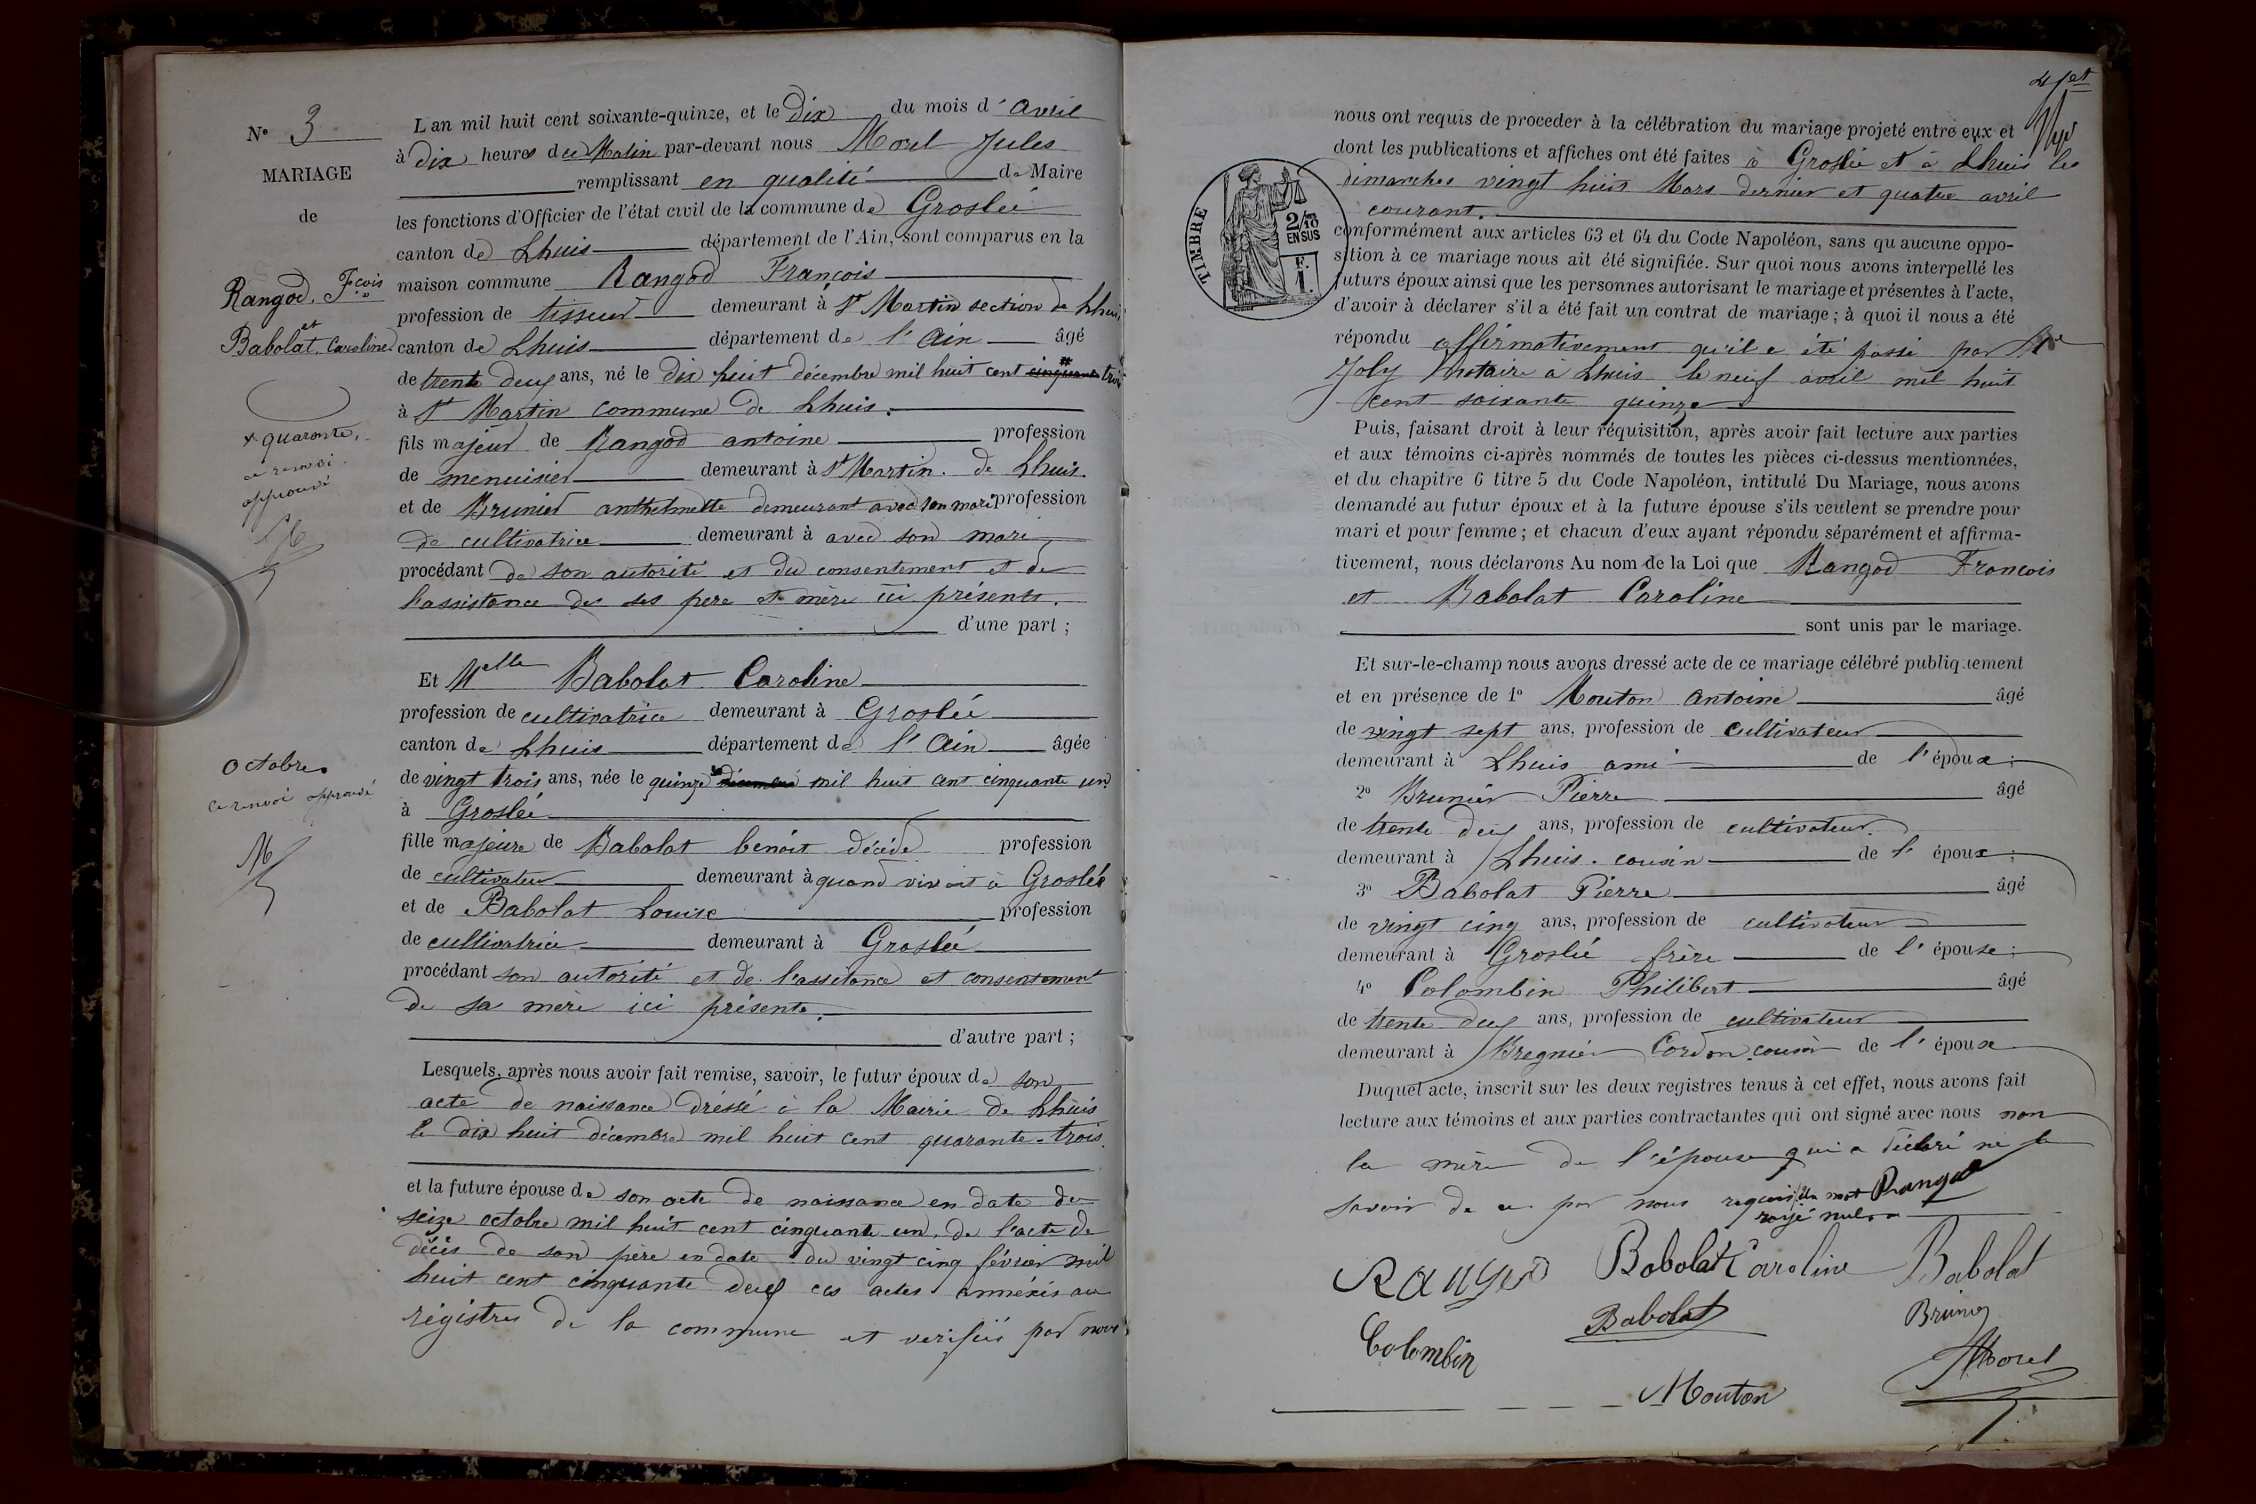 N° 3
MARIAGE
de
Rangod, Fçois
et
Babolat Caroline
x quarante,
ce renvoi
approuvé
octobre
ce renvoi approuvé
L'an mil huit cent soixante-quinze, et le dix du mois d'avril
à dix heures du Matin par-devant nous Morel Jules
remplissant en qualité de Maire
les fonctions d'Officier de l'état civil de la commune de Groslée
canton de Lhuis département de l'Ain, sont comparus en la
maison commune Rangod François
profession de tisseur demeurant à St Martin section de Lhuis
canton de Lhuis département de l'Ain âgé
de trente deux ans, né le dix huit décembre mil huit cent cinquante trois
à St Martin commune de Lhuis.
fils majeur de Rangod antoine profession
de menuisier demeurant à St Martin de Lhuis.
et de Brunier anthelmette demeurant avec son mari profession
de cultivatrice demeurant à avec son mari
procédant de son autorité et du consentement et de
l'assistance de ses père et mère ici présents.
d'une part ;
Et Melle Babolat Caroline
profession de cultivatrice demeurant à Groslée
canton de Lhuis département de l'Ain âgée
de vingt trois ans, née le quinze décembre mil huit cent cinquante un
à Groslée
fille majeure de Babolat benoit décédé profession
de cultivateur demeurant à quand vivait à Groslée
et de Babolat Louise profession
de cultivatrice demeurant à Groslée
procédant son autorité et de l'assitance et consentement
de sa mère ici présente.
d'autre part ;
Lesquels, après nous avoir fait remise, savoir, le futur époux de son
acte de naissance dressé à la Mairie de Lhuis
le dix huit décembre mil huit cent quarante-trois.
et la future épouse de son acte de naissance en date du
seize octobre mil huit cent cinquante un, de l'acte de
décès de son père en date du vingt cinq février mil
huit cent cinquante deux ces actes annéxés au
régistres de la commune et verifiés par nous
4 fet
TIMBRE
2/10
EN SUS
F.
1.
nous ont requis de proceder à la célébration du mariage projeté entre eux et
dont les publications et affiches ont été faites à Groslée et à Lhuis les
dimanches vingt huit Mars dernier et quatre avril
courant.
conformément aux articles 63 et 64 du Code Napoléon, sans qu'aucune oppo-
sition à ce mariage nous ait été signifiée. Sur quoi nous avons interpellé les
futurs époux ainsi que les personnes autorisant le mariage et présentes à l'acte,
d'avoir à déclarer s'il a été fait un contrat de mariage ; à quoi il nous a été
répondu affirmativement qu'il a été passé par Me
Joly notaire à Lhuis le neuf avril mil huit
cent soixante quinze
Puis, faisant droit à leur réquisition, après avoir fait lecture aux parties
et aux témoins ci-après nommés de toutes les pièces ci-dessus mentionnées,
et du chapitre 6 titre 5 du Code Napoléon, intitulé Du Mariage, nous avons
demandé au futur époux et à la future épouse s'ils veulent se prendre pour
mari et pour femme ; et chacun d'eux ayant répondu séparément et affirma-
tivement, nous déclarons Au nom de la Loi que Rangod François
et Babolat Caroline
sont unis par le mariage.
Et sur-le-champ nous avons dressé acte de ce mariage célébré publiquement
et en présence de 1° Mouton antoine âgé
de vingt sept ans, profession de cultivateur
demeurant à Lhuis ami de l'époux ;
2° Brunier Pierre âgé
de trente deux ans, profession de cultivateur
demeurant à Lhuis. cousin de l'époux ;
3° Babolat Pierre âgé
de vingt cinq ans, profession de cultivateur
demeurant à Groslée frère de l'épouse ;
4° Colombin Philibert âgé
de trente deux ans, profession de cultivateur
demeurant à Bregnier Cordon, cousin de l'épouse
Duquel acte, inscrit sur les deux registres tenus à cet effet, nous avons fait
lecture aux témoins et aux parties contractantes qui ont signé avec nous non
la mère de l'épouse qui a déclaré ne le
savoir de ce par nous requis. Un mot Rangod
rayé nul.
Rangod Babolat Caroline Babolat
Colombin Babolat Brunier
Mouton JMorel